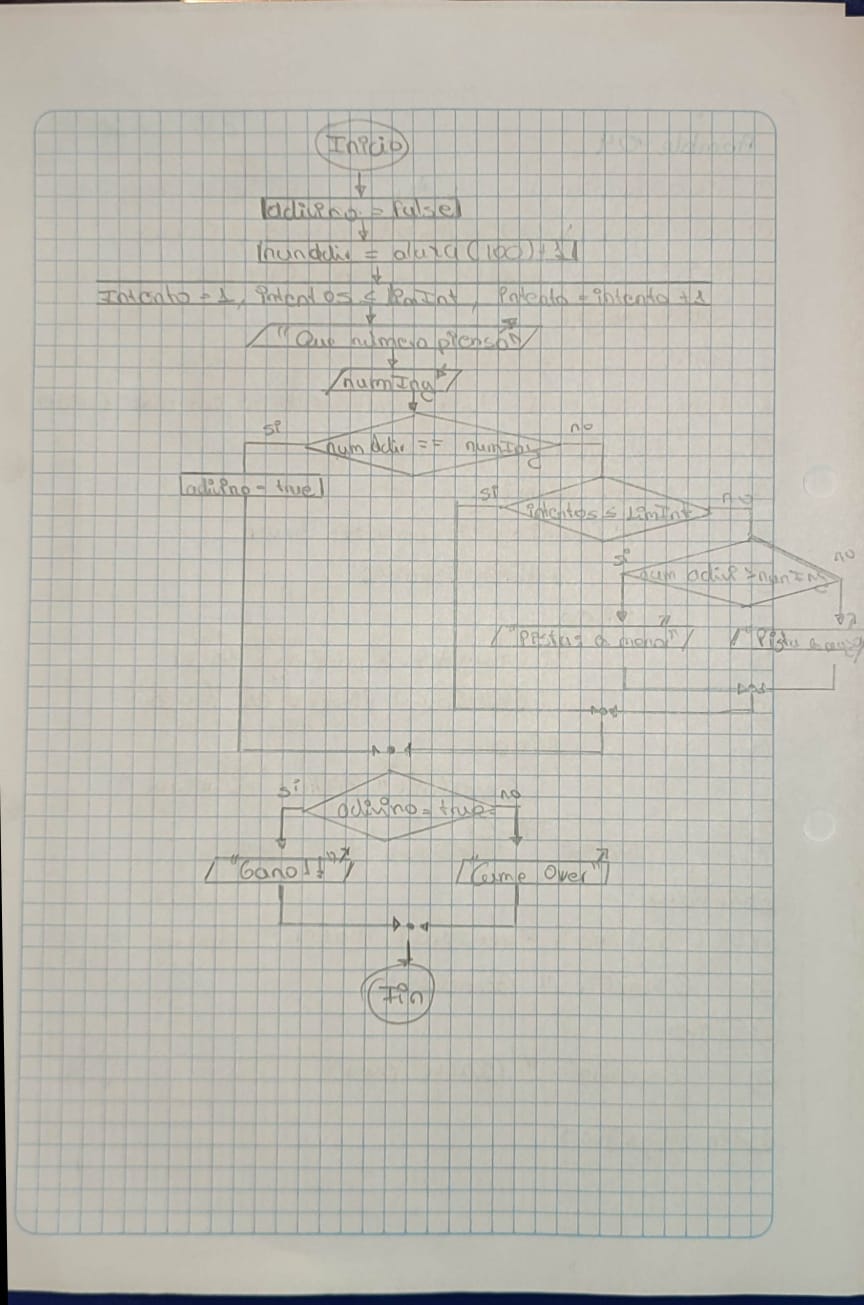 Inicio
adivino = false
numAdiv = alea(100)+1
Intento = 1, intentos ≤ limInt, intento = intento +1
"Que numero pienso"
numIng
si no
numAdiv == numIng
adivino = true
si no
intentos ≤ limInt
si no
num adivi > numIng
"Pistas a menor" "Pista a
si no
adivino = true
"Gano!!" "Game Over"
Fin